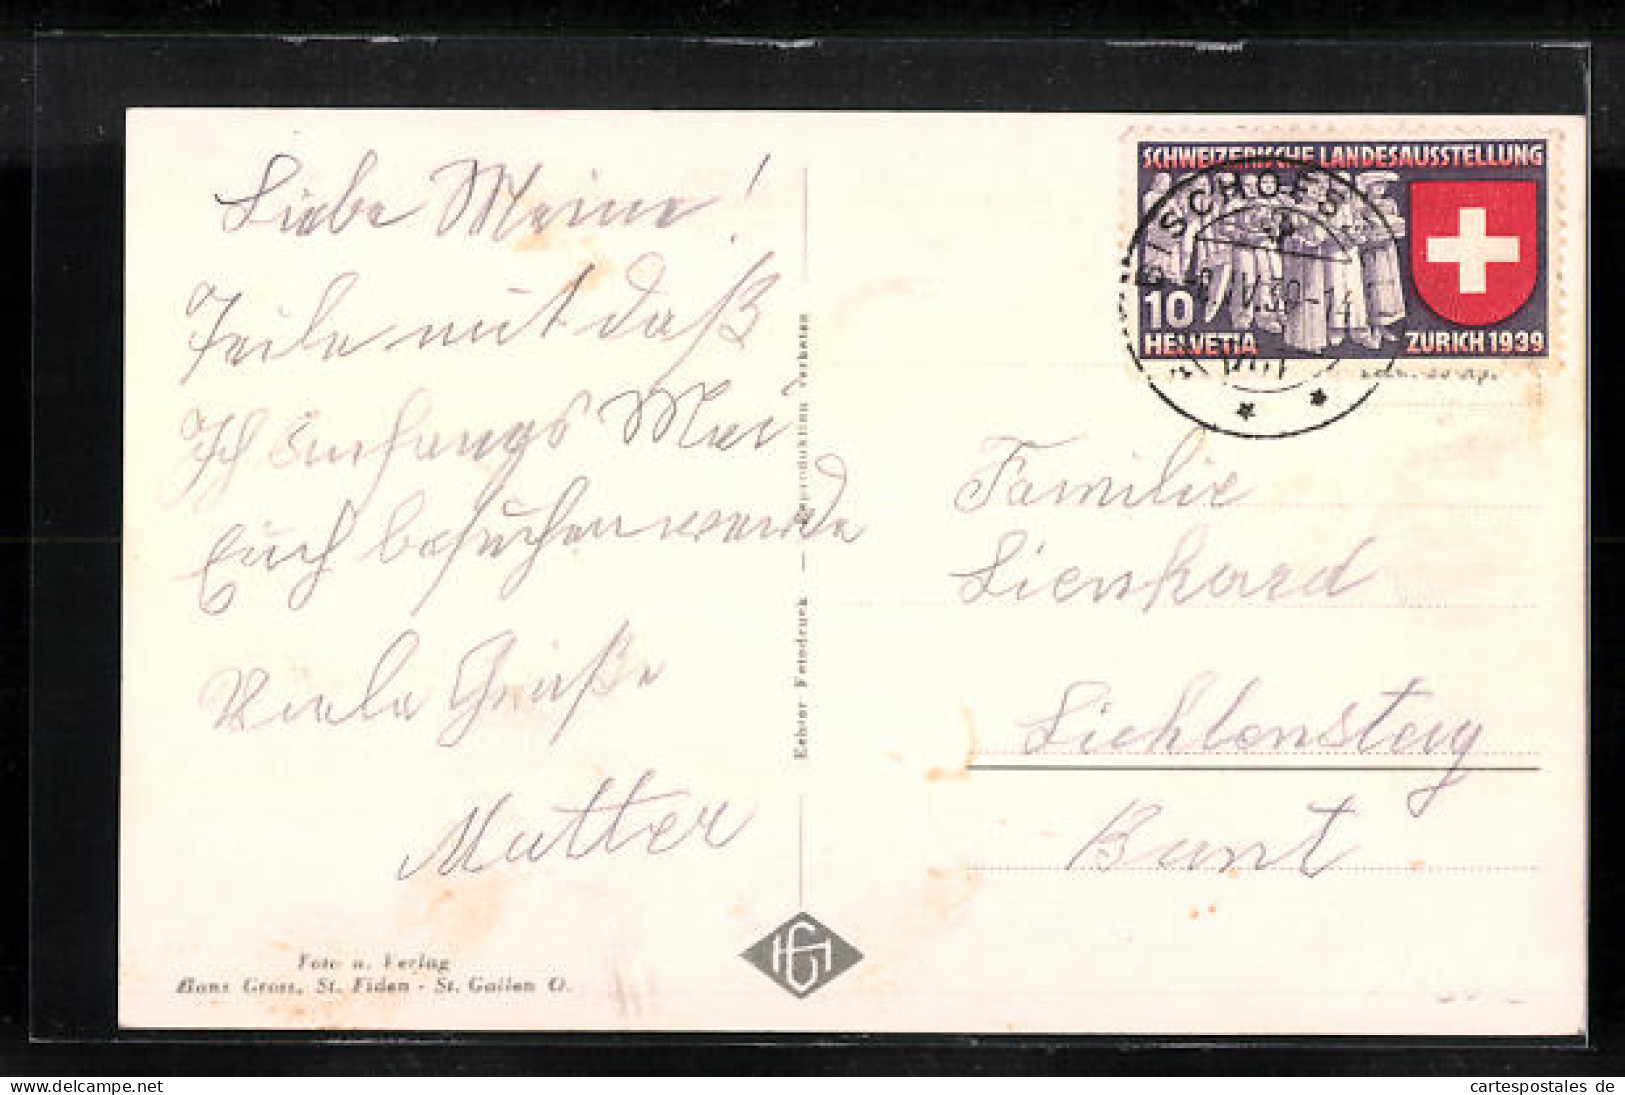 Liebe Meine!
Teile mit daß
Ich Anfangs Mai
Euch besuchen werde
Viele Grüße
Mutter
Foto u. Verlag
Hans Gross, St. Fiden - St. Gallen O.
Echter Fotodruck — Reproduktion verboten
SCHWEIZERISCHE LANDESAUSSTELLUNG
10
HELVETIA
ZURICH 1939
BISCHOFS
IV.39-14
Familie
Lienhard
Lichtensteig
Bunt
HG
cartespostales de